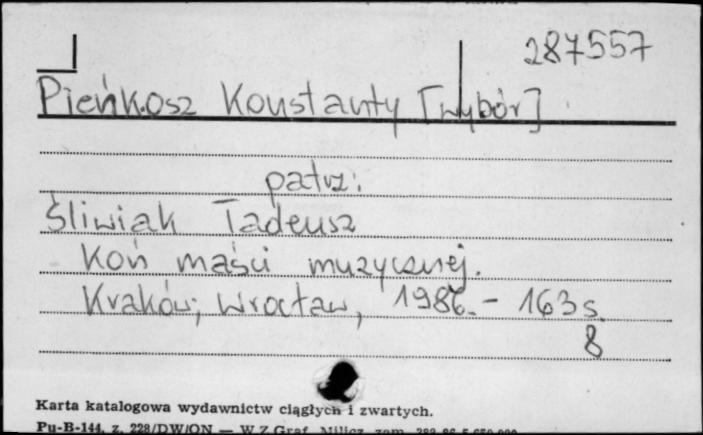 287557
Pieńkosz Konstanty [wybór]
patrz:
Śliwiak Tadeusz
Koń maści muzycznej.
Kraków; Wrocław, 1986. - 163 s.
8
Karta katalogowa wydawnictw ciągłych i zwartych.
Pu-B-144, z. 228/DW/ON — W.Z.Graf. Milicz, zam.